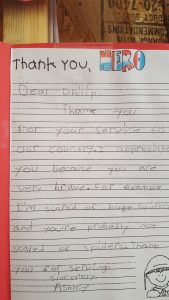 COMMENDATIONS
Thank you, HERO
Dear Philip,
Thank you
for your service in
our country. I appreciate
you because you are
very brave. For example
I'm scared of huge spiders
and you're probably not
scared of spiders. Thank
you for serving.
sincerely,
Ashley